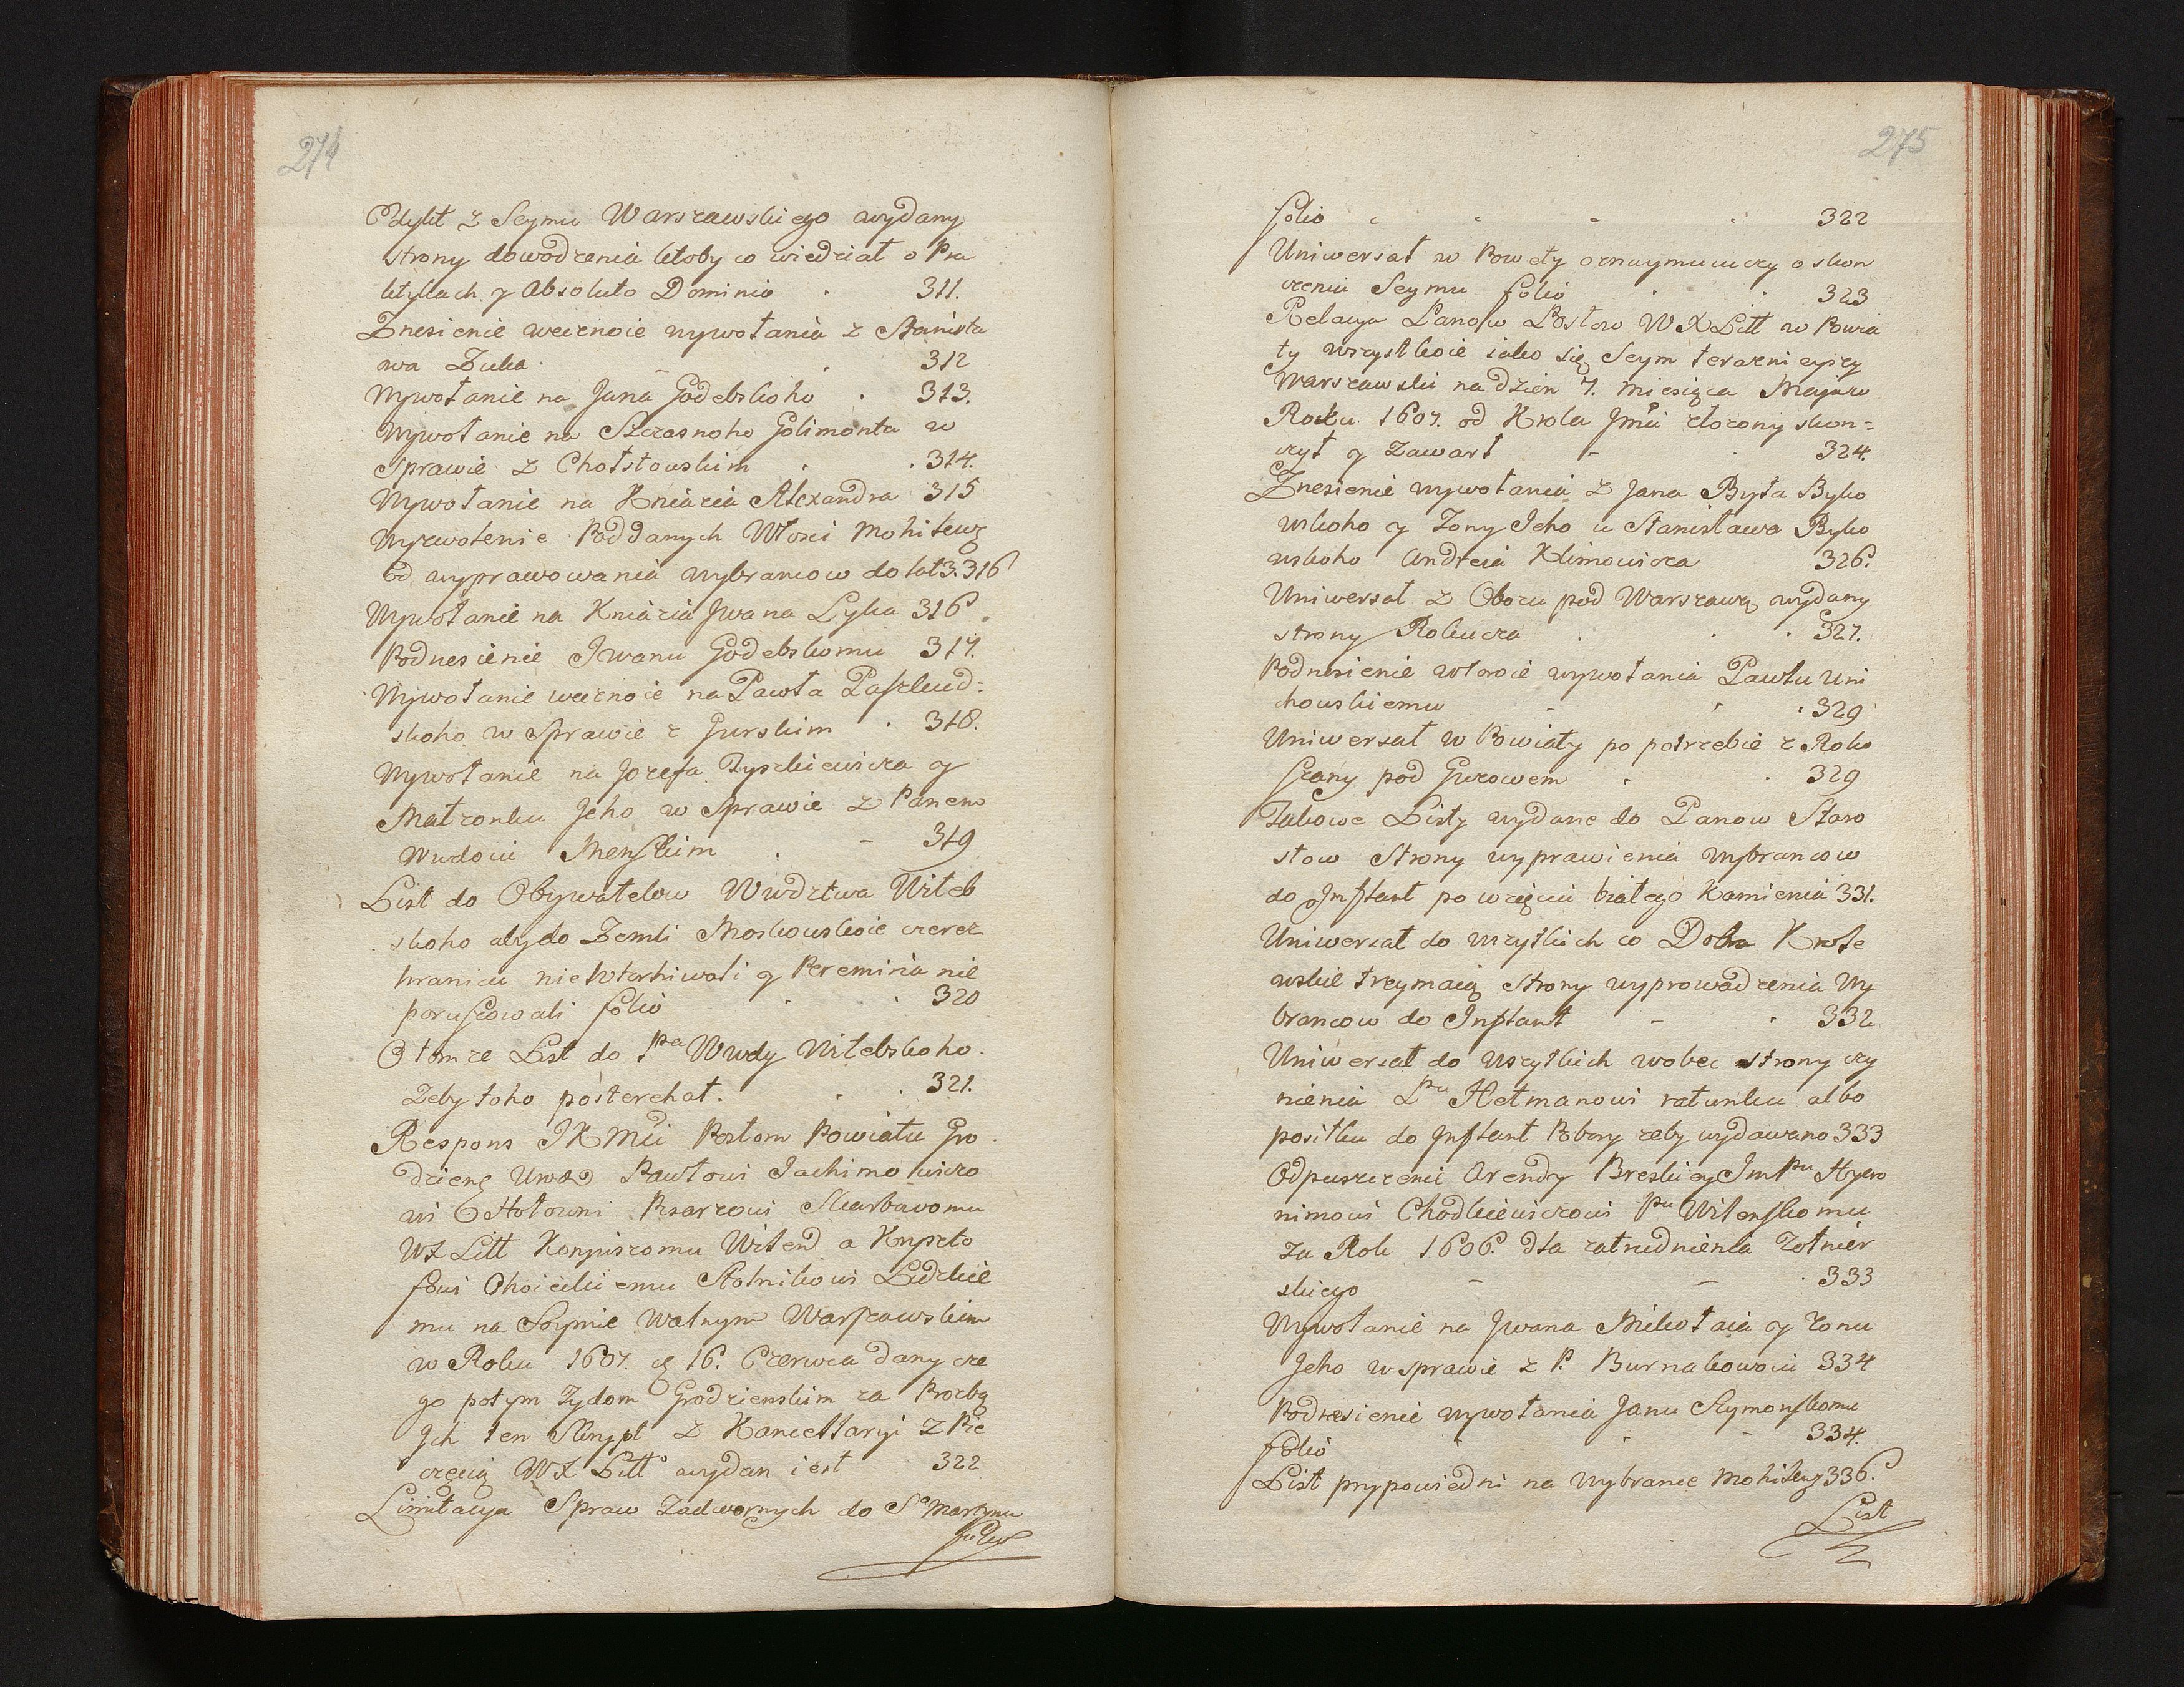 274
Edykt z Seymu Warszawskiego wydany
strony dowodzenia ktoby co wiedział o Pra
ktykach y Absoluto Dominio . 311.
Znesienie weecznoie wywołania z Stanisła
wa Zuka . 312
Wywołanie na Jana Godebskoho . 313.
Wywołanie na Szczasnoho Golimonta w
sprawie z Chotstowskim . . 314.
Wywołanie na Kniazia Alexandra 315
Wyzwolenie Poddanych Włosci Mohilewz
od wyprawowania wybrancow do lat 3. 316
Wywołanie na Kniazia Jwana Lyka 316.
Podnesienie Iwanu Godebskomu 317.
Wywołanie weecznoie na Pawła Paszkud=
skoho w Sprawie z Gurskim . 318.
Wywołanie na Jozefa Tyszkiewicza y
Małzonku Jeho w Sprawie z Panem
Wwdoiu Menskim . - 319
List do Obywatelow Wwdztwa Witeb
skoho aby do Zemli Moskowskoie czerez
hranicu nie wtorhiwali y Peremiria nie
poruszowali folio . . 320
O tomze List do Pa Wwdy Witebskoho.
Zeby toho posterehat. . . 321.
Respons JKMći Posłom Powiatu Gro
dzieng Urod Pawłowi Jachimowiczo
wi Hołowni Pisarzowi Skarbowomu
WX Litt Koniuszomu Witend a Krysto
fowi Choieckiemu Stolnikowi Lidzkie
mu na Seymie Walnym Warszawskim
w Roku 1607. y 16. Czerwca dany cze
go potym Zydom Grodzienskim za Prozbą
Jch ten Skrypt z Kancellaryi z Pie
częcią WX Litt° wydan iest 322
Limitacya Spraw Zadwornych do Sº Martyna
folio
275
folio . . . . 322
Uniwersał w Powety oznaymuiuczy o skon
czeniu Seymu folio . . 323
Relacya Panow Posłow WXLitt w Powia
ty wszystkoie iako się Seym terazni eyszy
Warszawski na dzien 7. Miesiąca Maja w
Roku 1607. od Krola Jmći złozony skon=
czył y zawart - . 324.
Znesienie wywołania z Jana Była Byko
wskoho y Zony Jeho u Stanisława Byko
wskoho Andreia Klimowicza 326.
Uniwersał z Obozu pod Warszawą wydany
strony Rokucza . . . 327.
Podnesienie wtoroie wywołania Pawłu Uni
chowskiemu - . . 329
Uniwersał w Powiaty po potrzebie z Roko
szany pod Guzowem . . 329
Takowe Listy wydane do Panow Staro
stow Strony wyprawienia wybrancow
do Inflant po wzięciu białego Kamienia 331.
Uniwersał do wszytkich co Dobra Krole
wskie trzymaią strony wyprowadzenia Wy
brancow do Inflant - . 332
Uniwersał do wszytkich wobec strony czy
nienia Pu Hetmanowi ratunku albo
posiłku do Inflant Pobory zeby wydawano 333
Odpuszczenie Arendy Breskiey Jm Pu Hyero
nimowi Chodkiewiczowi Pu Wilenskomu
za Rok 1606. dla zatrudnienia Zołnier
skiego - - . 333
Wywołanie na Jwana Mikołaia y zonu
Jeho w sprawie z P. Burnakowoiu 334
Podnesienie wywołania Janu Szymonskomu
folio . . - 334.
List prypowiedni na wybrance Mohilewz 336.
List